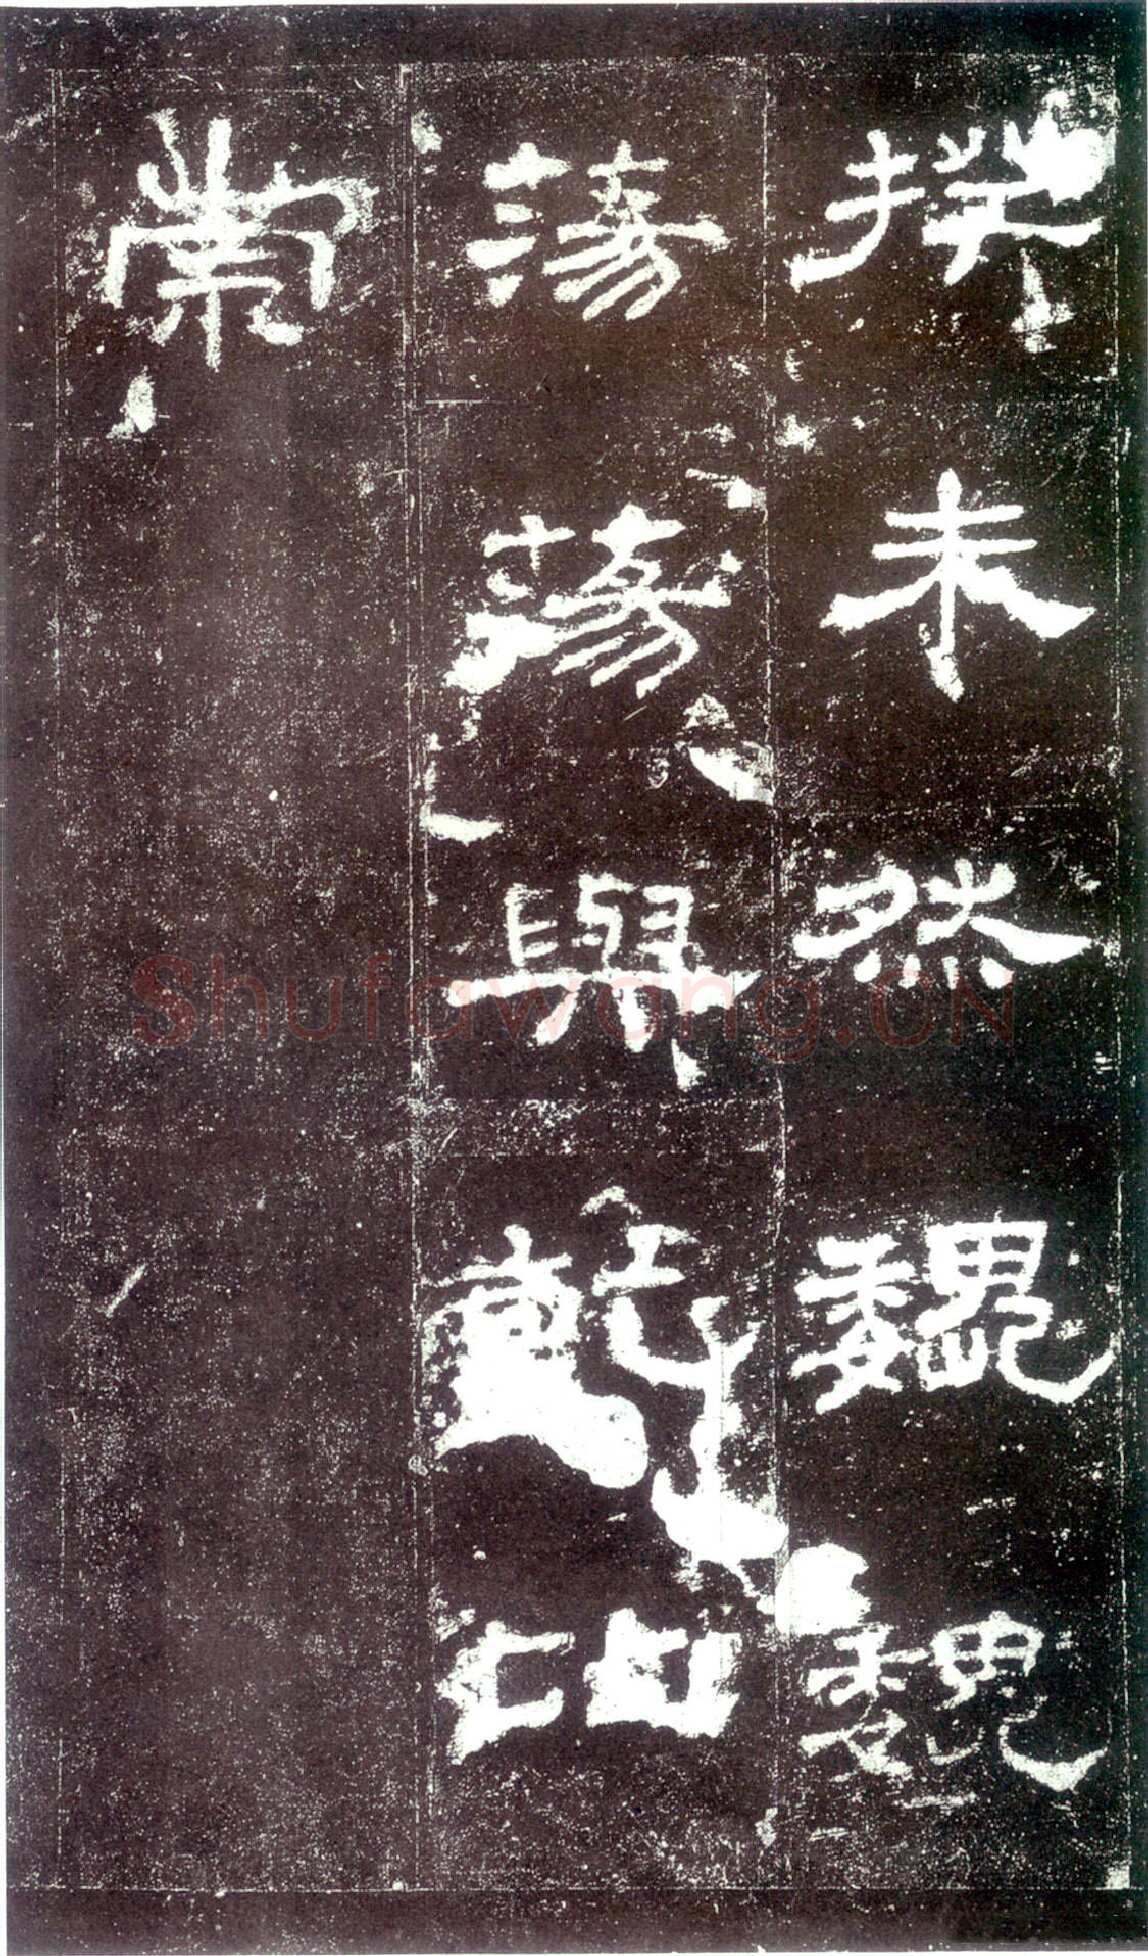 揆未然巍巍
蕩蕩與乾比
崇
Shufawang.CN